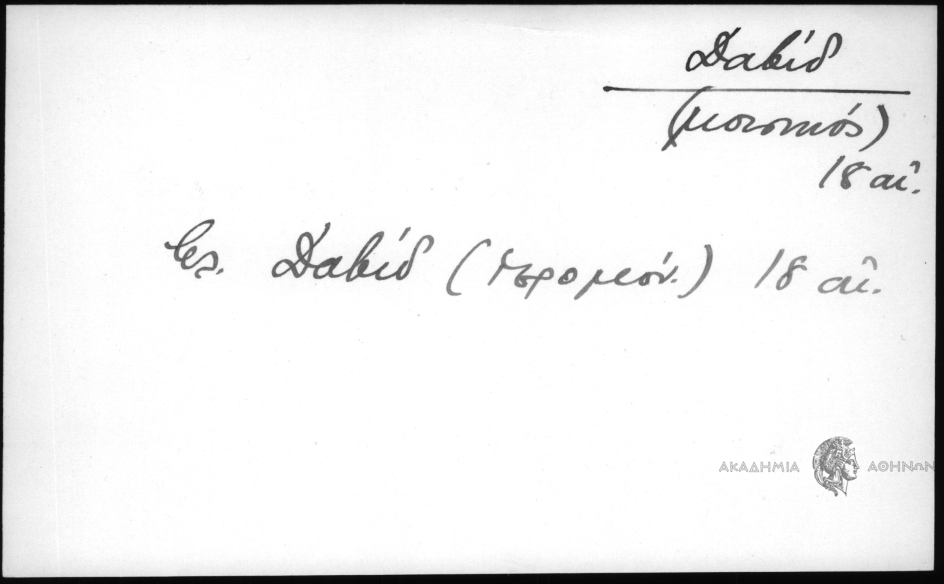 Δαβίδ
(μουσικός)
18 αἰ.
Βλ. Δαβίδ (ἱερομόν.) 18 αἰ.
ΑΚΑΔΗΜΙΑ ΑΘΗΝΩΝ